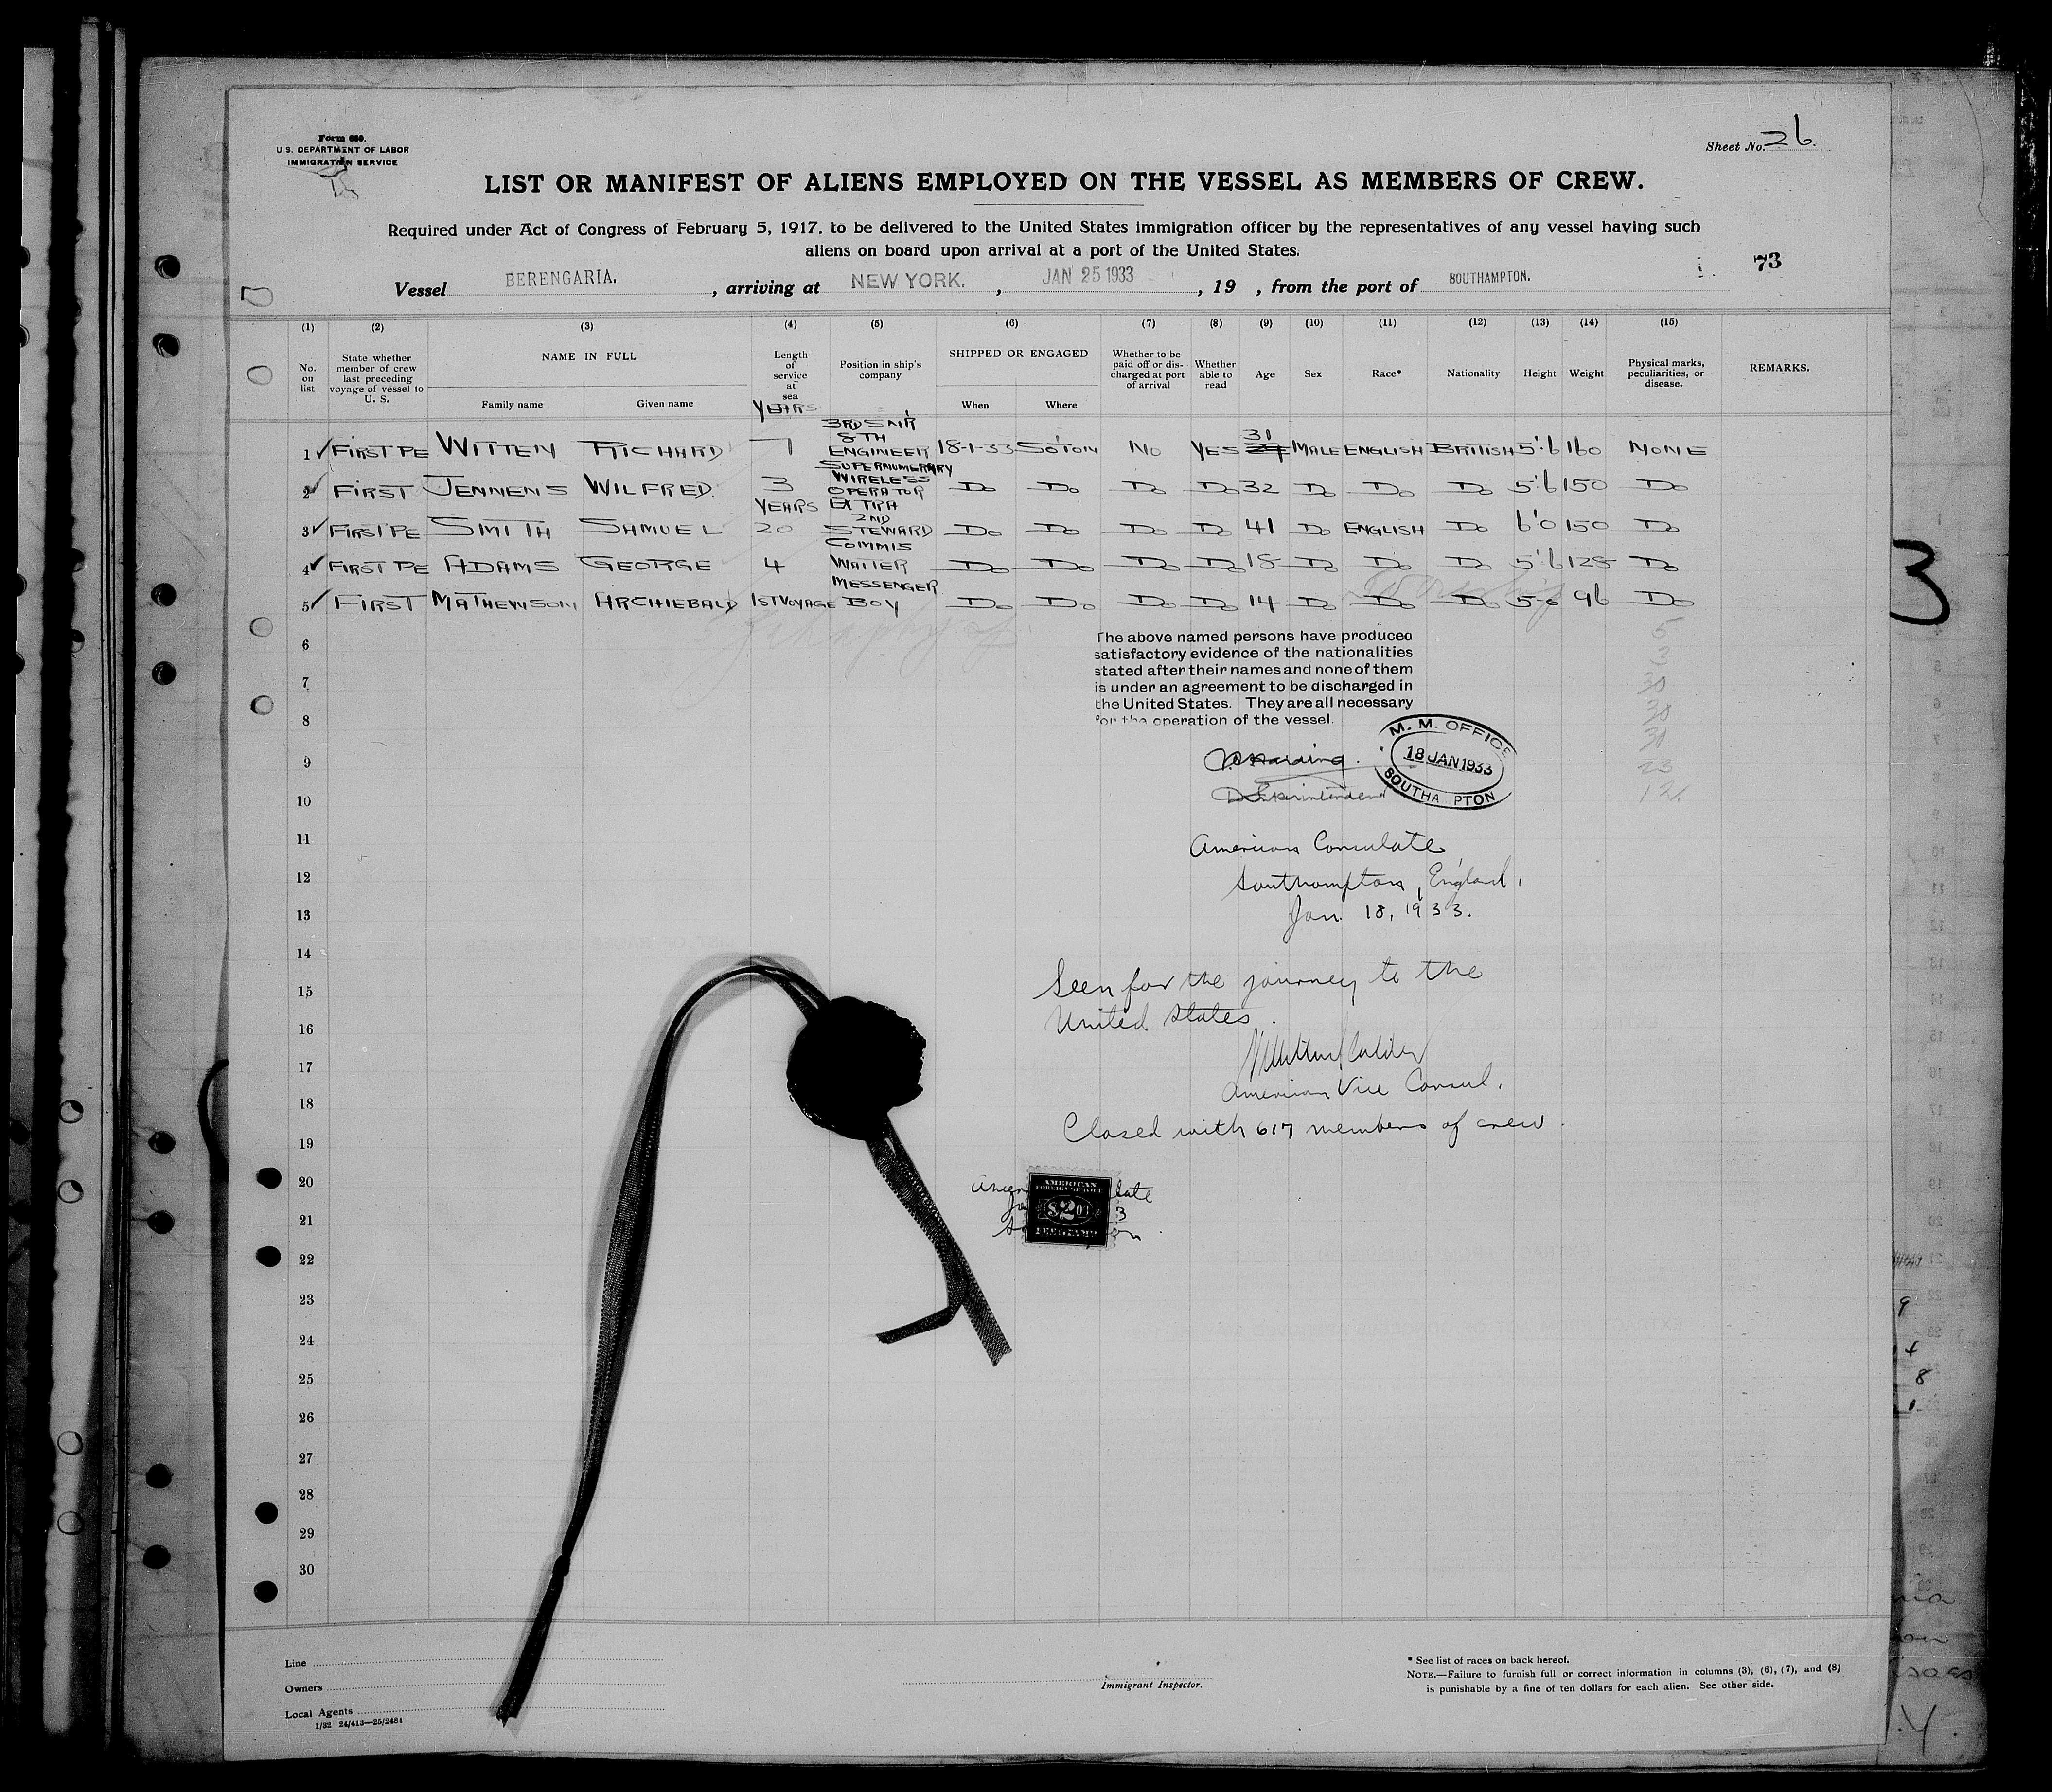 Form 680.
U.S. DEPARTMENT OF LABOR
IMMIGRATION SERVICE
Sheet No. 26.
LIST OR MANIFEST OF ALIENS EMPLOYED ON THE VESSEL AS MEMBERS OF CREW.
Required under Act of Congress of February 5, 1917, to be delivered to the United States immigration officer by the representatives of any vessel having such
aliens on board upon arrival at a port of the United States.
73
Vessel BERENGARIA. , arriving at NEW YORK. , JAN 25 1933 , 19 , from the port of SOUTHAMPTON.
(1) (2) (3) (4) (5) (6) (7) (8) (9) (10) (11) (12) (13) (14) (15)
No. on list State whether member of crew last preceding voyage of vessel to U. S. NAME IN FULL Family name Given name Length of service at sea Position in ship's company SHIPPED OR ENGAGED When Where Whether to be paid off or discharged at port of arrival Whether able to read Age Sex Race* Nationality Height Weight Physical marks, peculiarities, or disease. REMARKS.
YEARS
1 FIRST PE WITTEN RICHARD 7 3RD SNR 8TH ENGINEER 18-1-33 SOTON NO YES 31 MALE ENGLISH BRITISH 5'6 160 NONE
2 FIRST JENNENS WILFRED. 3 SUPERNUMERARY WIRELESS OPERATOR Do Do Do Do 32 Do Do Do 5'6 150 Do
3 FIRST PE SMITH SAMUEL YEARS 20 EXTRA 2ND STEWARD Do Do Do Do 41 Do ENGLISH Do 6'0 150 Do
4 FIRST PE ADAMS GEORGE 4 COMMIS WAITER Do Do Do Do 18 Do Do Do 5'6 128 Do
5 FIRST MATHEWSON ARCHIEBALD 1ST VOYAGE MESSENGER BOY Do Do Do Do 14 Do Do Do 5-6 96 Do
6
The above named persons have produced
satisfactory evidence of the nationalities
stated after their names and none of them
7
is under an agreement to be discharged in
the United States. They are all necessary
8
for the operation of the vessel.
M. M. OFFICE
18 JAN 1933
SOUTHA PTON
9
10
Superintendent
11
American Consulate
12
Southampton, England,
13
Jan. 18, 1933.
14
Seen for the journey to the
15
United States.
16
17
American Vice Consul.
18
Closed with 617 members of crew.
19
20
AMERICAN
FOREIGN SERVICE
$2.00
FEE STAMP
21
22
23
24
25
26
27
28
29
30
Line
Owners
Local Agents
1/32 24/413—25/2484
Immigrant Inspector.
* See list of races on back hereof.
NOTE.—Failure to furnish full or correct information in columns (3), (6), (7), and (8)
is punishable by a fine of ten dollars for each alien. See other side.
3